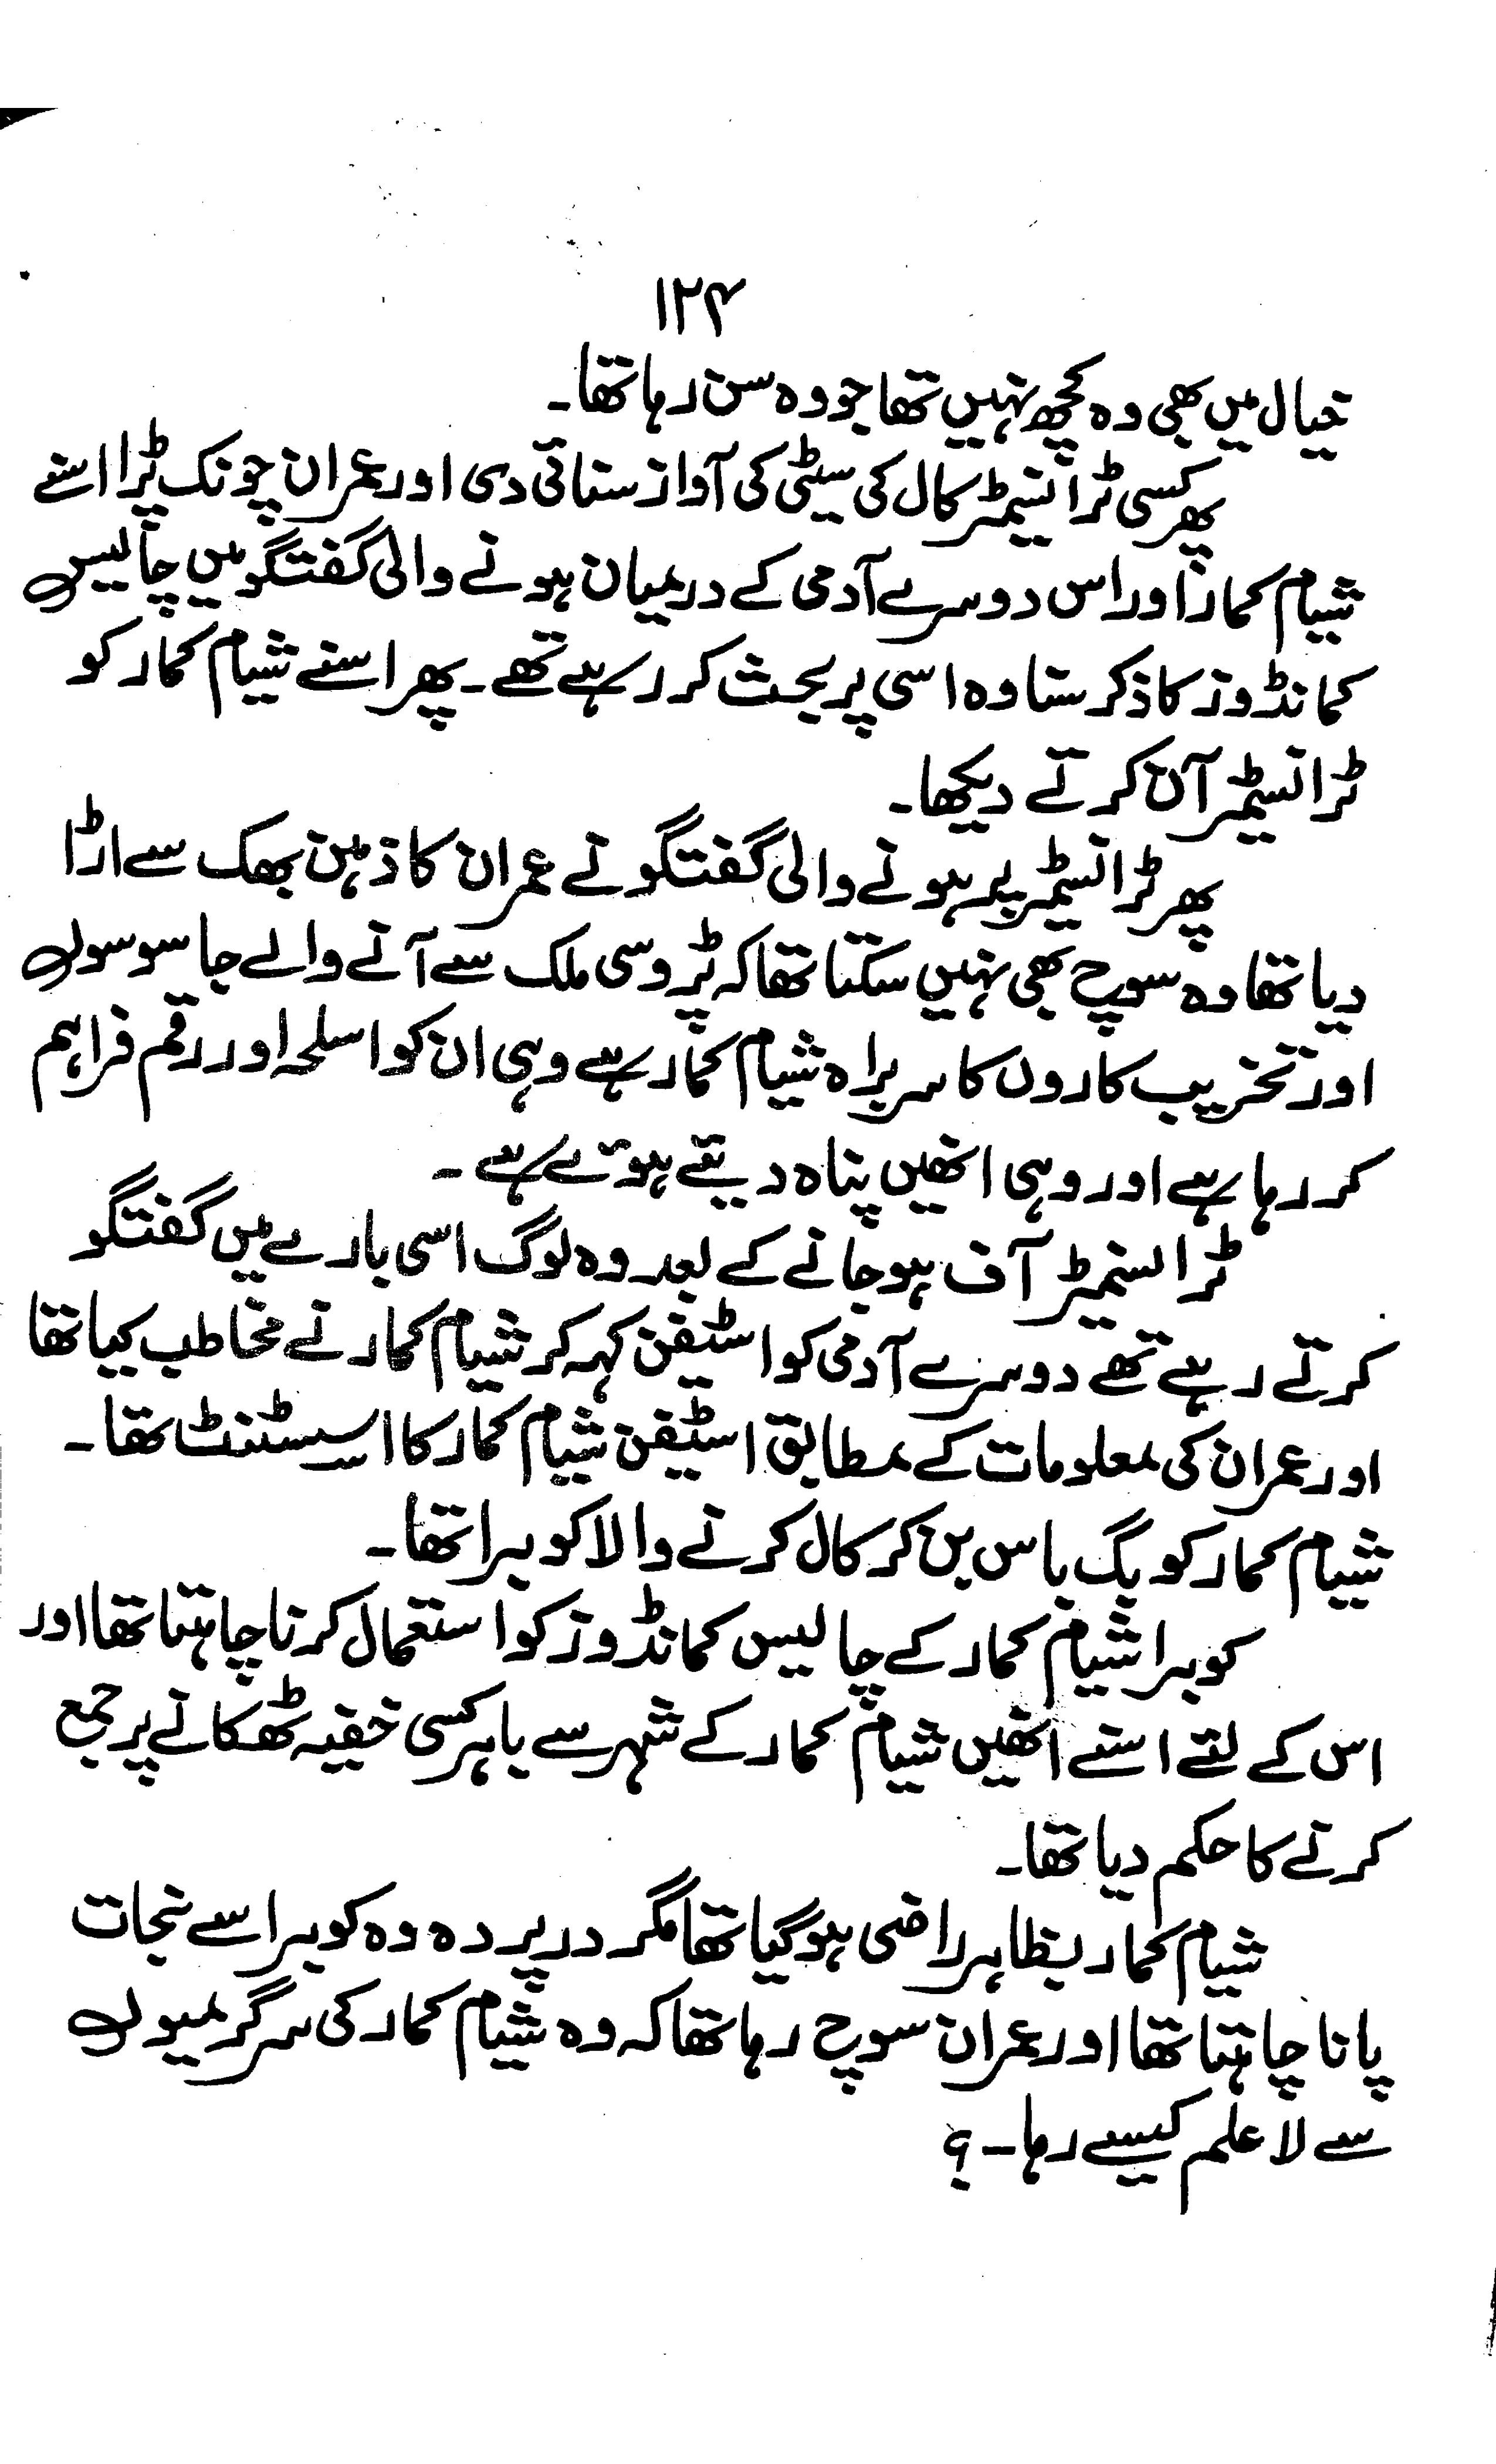 ۱۲۴
خیال میں بھی وہ کچھ نہیں تھا جو وہ سن رہا تھا۔
پھر کسی ٹرانسیمٹر کال کی سیٹی کی آواز سنائی دی اور عمران چونک پڑا اسنے
شیام کمار اور اس دوسرے آدمی کے درمیان ہونے والی گفتگو میں چالیس
کمانڈوز کا ذکر سنا وہ اسی پر بحث کر رہے تھے۔ پھر اسنے شیام کمار کو
ٹرانسیٹمر آن کرتے دیکھا۔
پھر ٹرانسیٹمر پر ہونے والی گفتگو نے عمران کا ذہن بھک سے اڑا
دیا تھا وہ سوچ بھی نہیں سکتا تھا کہ پڑوسی ملک سے آنے والے جاسوسوں
اور تخریب کاروں کا سربراہ شیام کمار ہے وہی ان کو اسلحہ اور رقم فراہم
کر رہا ہے اور وہی انھیں پناہ دیئے ہوئے ہے۔
ٹرانسمیٹر آف ہو جانے کے بعد وہ لوگ اسی بارے میں گفتگو
کرتے رہے تھے دوسرے آدمی کو اسٹیفن کہہ کر شیام کمار نے مخاطب کیا تھا
اور عمران کی معلومات کے مطابق اسٹیفن شیام کمار کا اسسٹنٹ تھا۔
شیام کمار کو بگ باس بن کر کال کرنے والا کوبرا تھا۔
کوبرا شیام کمار کے چالیس کمانڈوز کو استعمال کرنا چاہتا تھا اور
اس کے لئے اسنے انھیں شیام کمار کے شہر سے باہر کسی خفیہ ٹھکانے پر جمع
کرنے کا حکم دیا تھا۔
شیام کمار بظاہر راضی ہو گیا تھا مگر در پردہ وہ کوبرا سے نجات
پانا چاہتا تھا اور عمران سوچ رہا تھا کہ وہ شیام کمار کی سرگرمیوں
سے لاعلم کیسے رہا۔؟